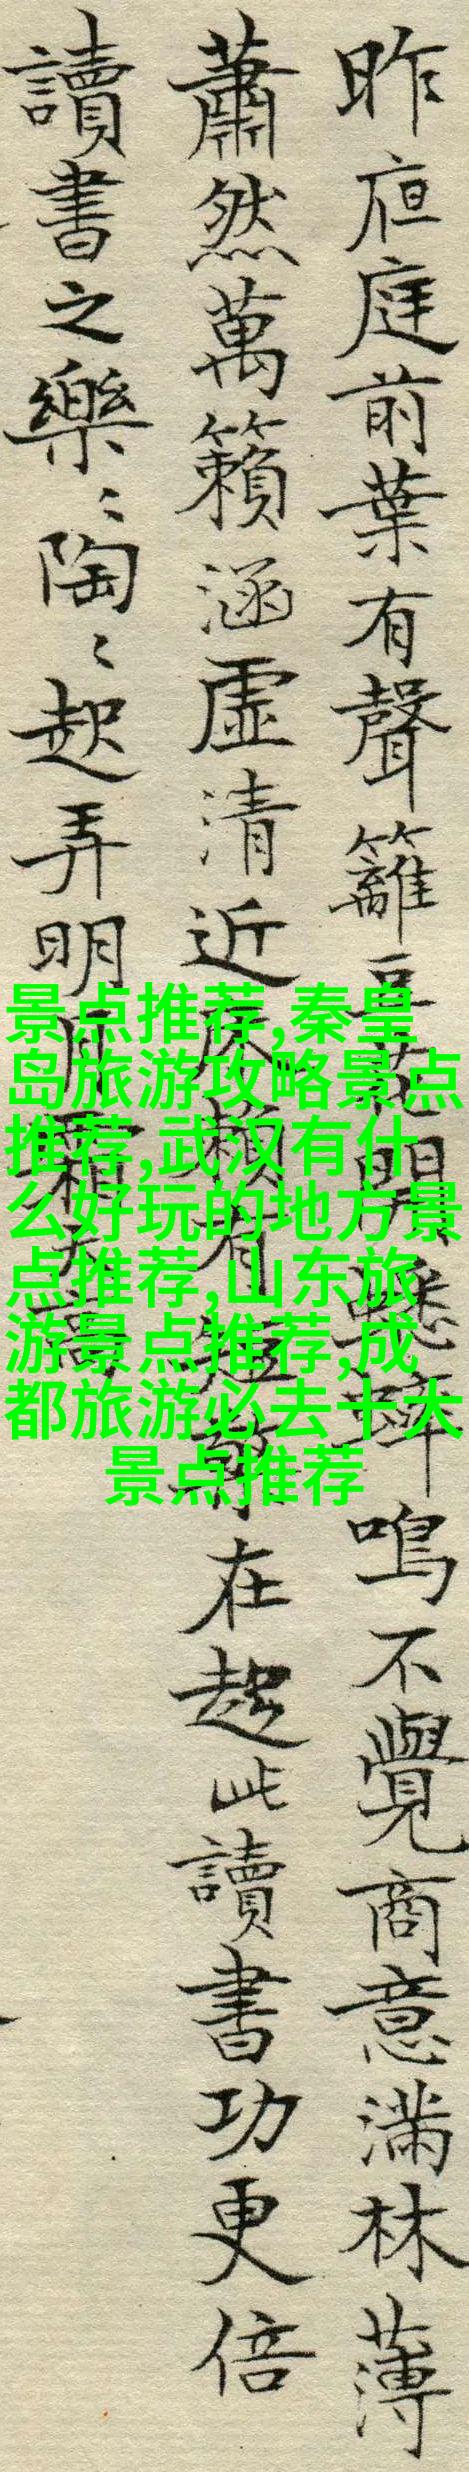 昨亱庭前葉有聲籬豆花開蟋蟀鳴不覺商意滿林薄
蕭然萬籟涵虛清近床賴有短檠在起此讀書功更倍
讀書之樂〻陶〻起弄明月霜天高
景点推荐,秦皇
岛旅游攻略景点
推荐,武汉有什
么好玩的地方景
点推荐,山东旅
游景点推荐,成
都旅游必去十大
景点推荐